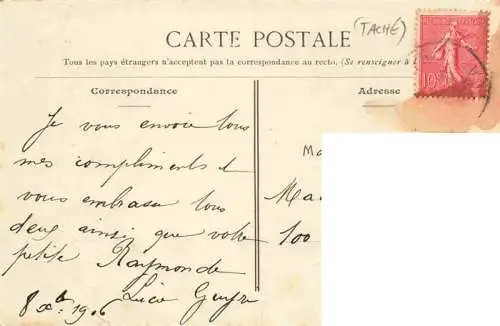 (TACHÉ)
CARTE POSTALE
Tous les pays étrangers n'acceptent pas la correspondance au recto, (Se renseigner à l
Correspondance
Adresse
10
Je vous envoie tous
mes compliments et
vous embrasse tous
deux ainsi que votre
petite Raymonde
Ma
Ma
100
8 Xbre 1906